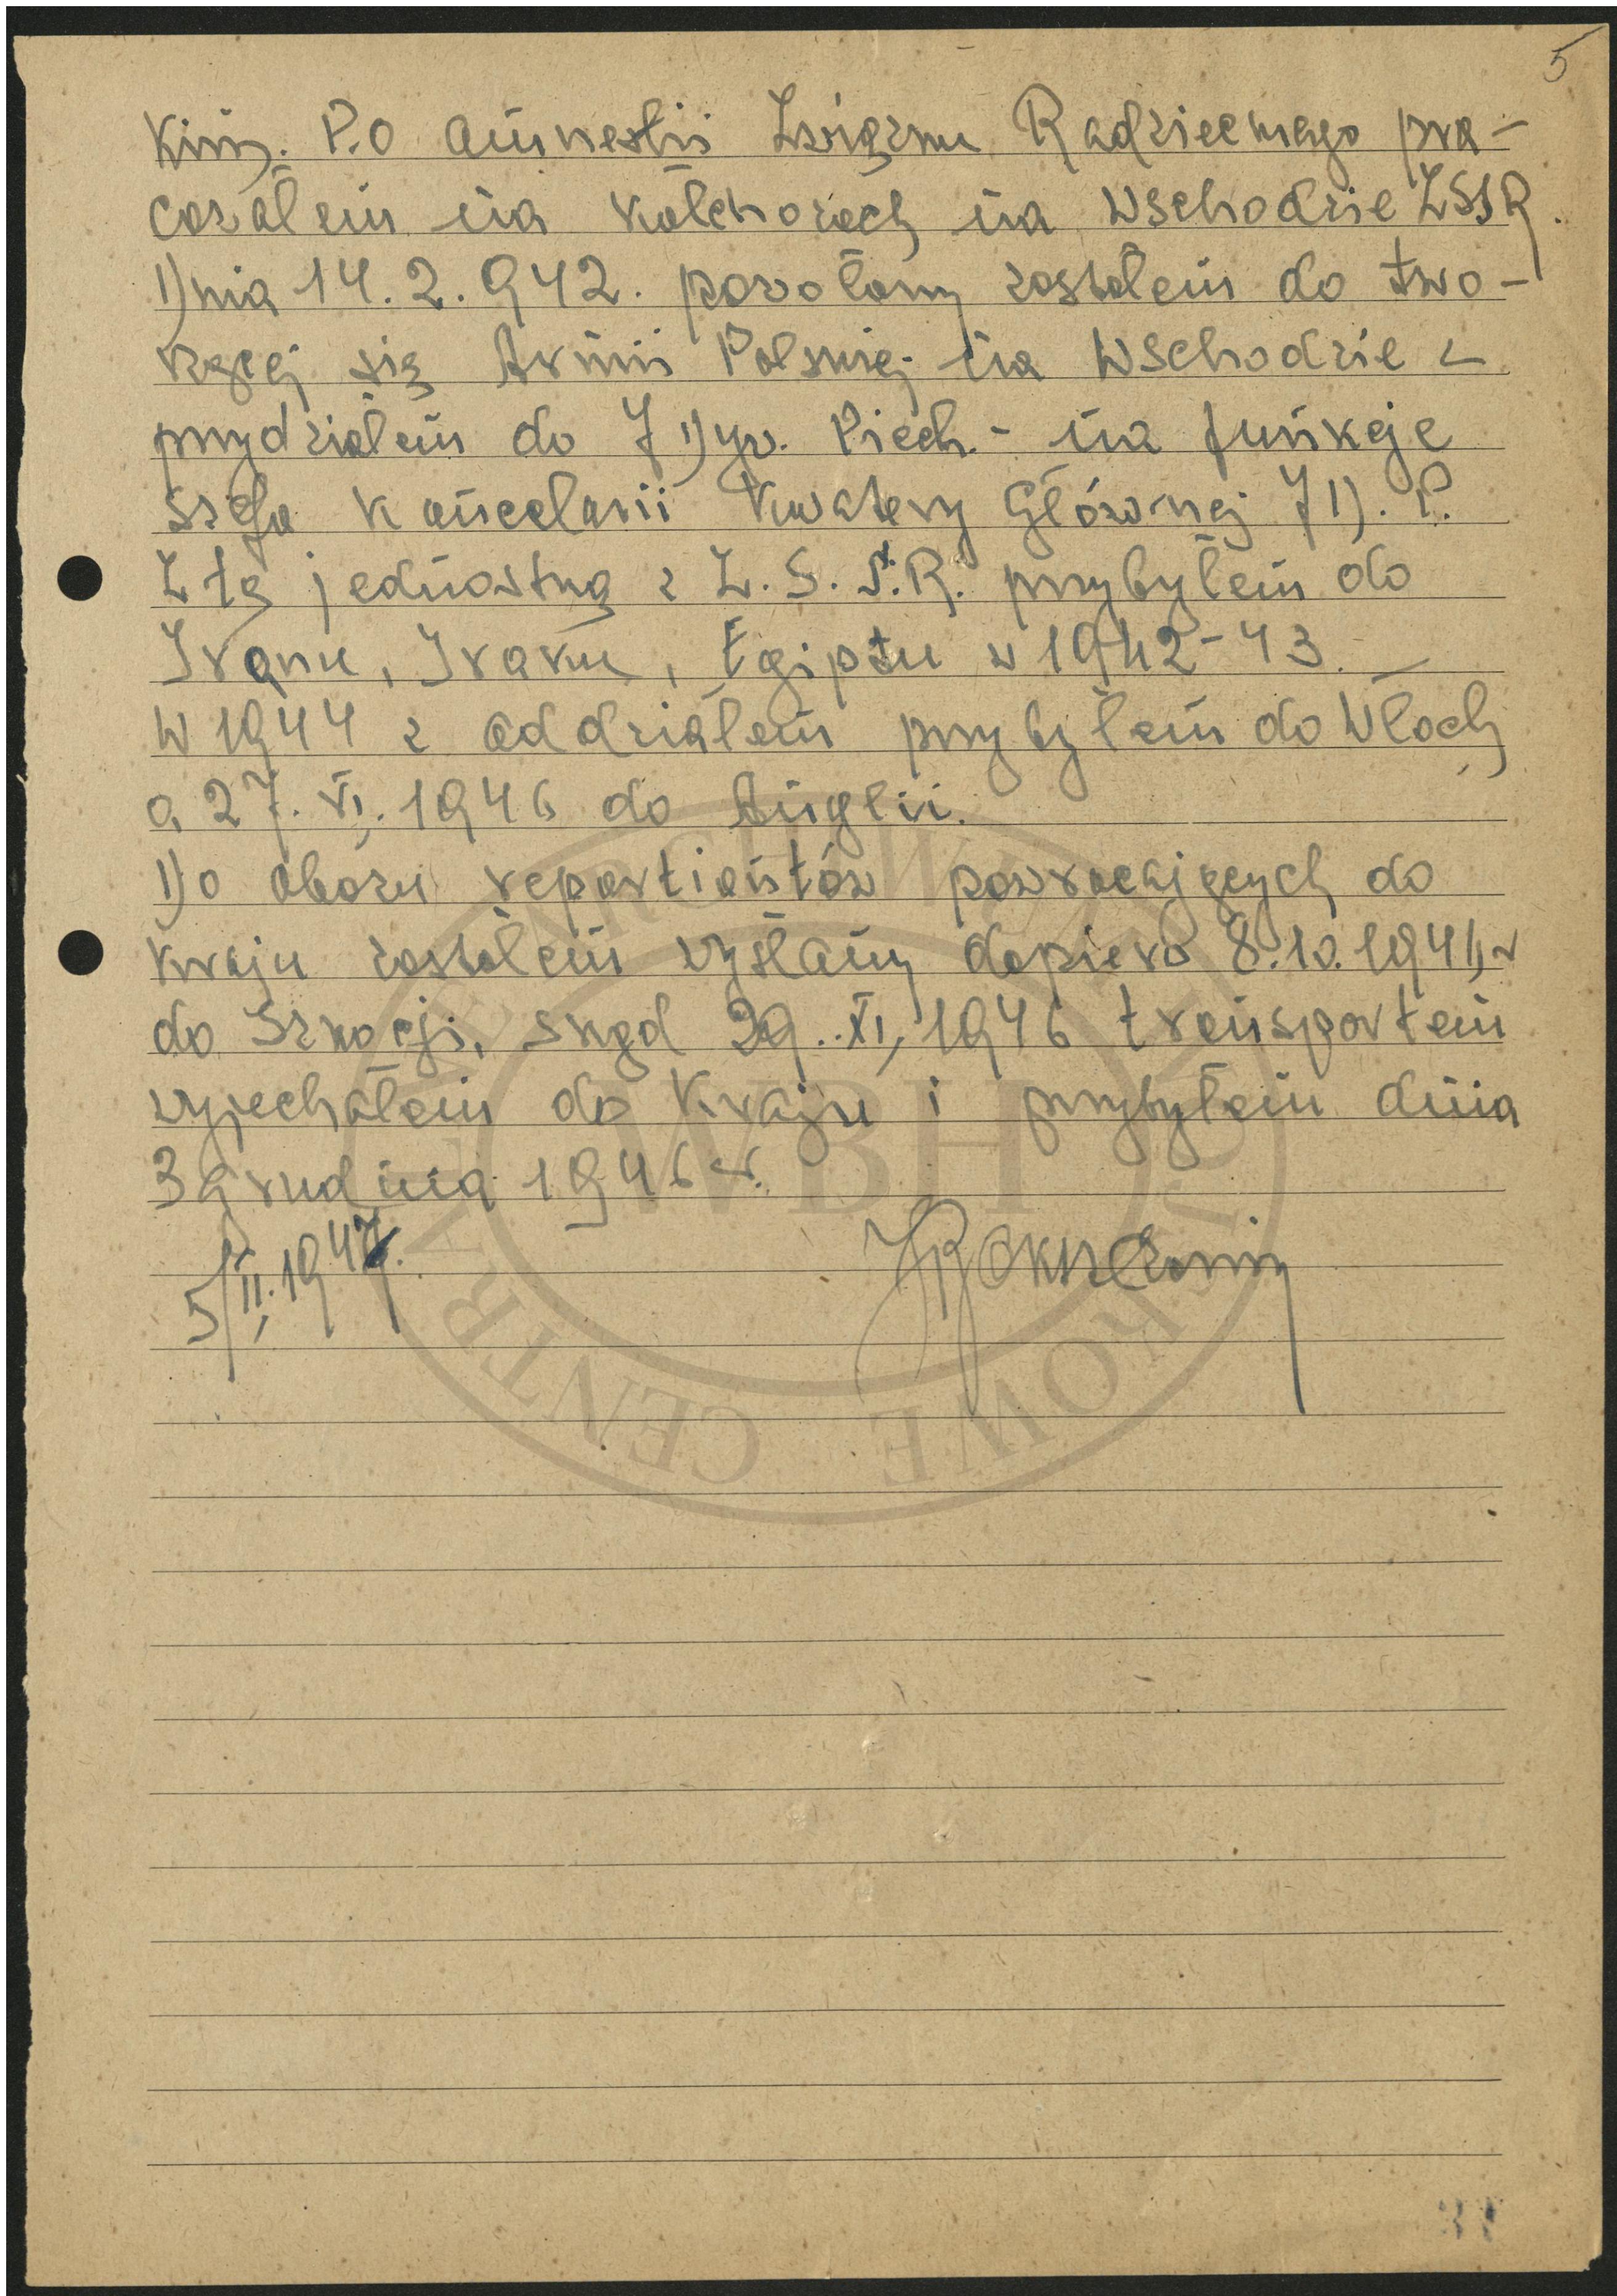 5
kim. Po amnestii Związku Radzieckiego pra-
cowałem na kołchozach na wschodzie ZSSR.
Dnia 14.2.942. powołany zostałem do two-
rzącej się Armii Polskiej na Wschodzie z
przydziałem do 7 Dyw. Piech. - na funkcje
szefa kancelarii Kwatery Głównej 7 D. P.
Z tą jednostką z Z. S. S. R. przybyłem do
Iranu, Iraku, Egiptu w 1942-43. —
W 1944 z oddziałem przybyłem do Włoch
a 27. VI. 1946 do Anglii.
Do obozu repartiantów powracających do
kraju zostałem wysłany dopiero 8.10.1946 r
do Szkocji, skąd 29. XI, 1946 transportem
wyjechałem do Kraju i przybyłem dnia
3 grudnia 1946 r.
5/II. 1947.
WBH
CENTR
OWE